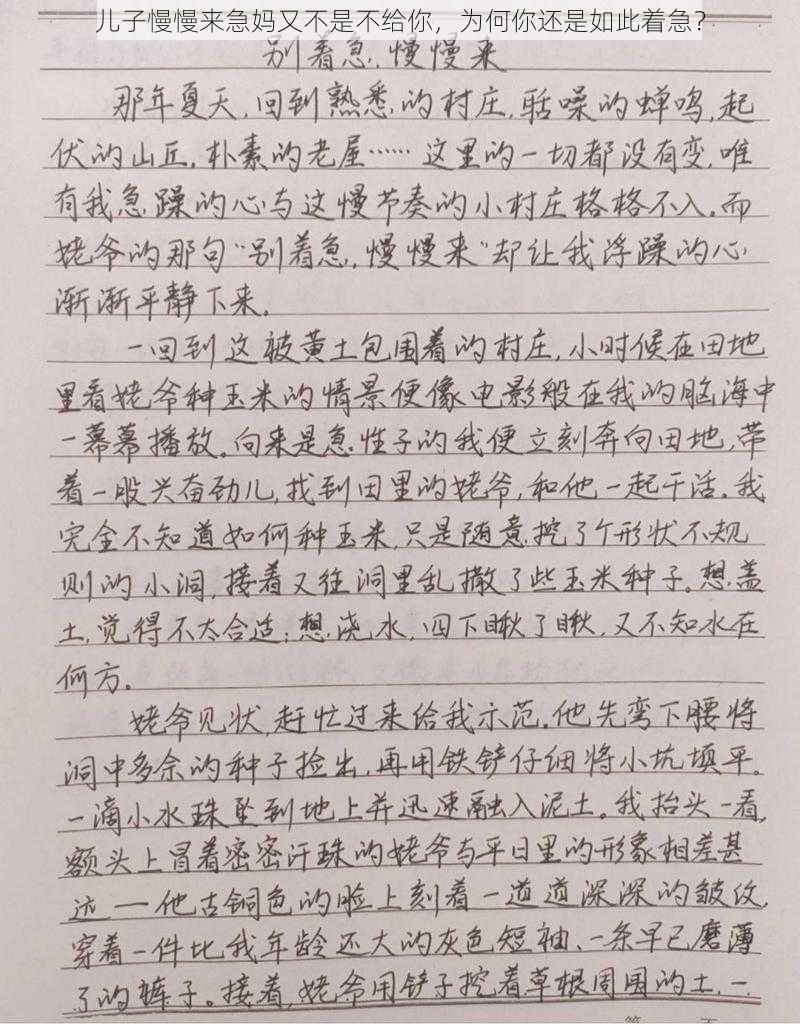 儿子慢慢来急妈又不是不给你，为何你还是如此着急？
别着急,慢慢来
那年夏天,回到熟悉的村庄,聒噪的蝉鸣,起
伏的山丘,朴素的老屋……这里的一切都没有变,唯
有我急躁的心与这慢节奏的小村庄格格不入。而
姥爷的那句“别着急,慢慢来”却让我浮躁的心
渐渐平静下来。
一回到这被黄土包围着的村庄,小时候在田地
里看姥爷种玉米的情景便像电影般在我的脑海中
一幕幕播放。向来是急性子的我便立刻奔向田地,带
着一股兴奋劲儿,找到田里的姥爷,和他一起干活。我
完全不知道如何种玉米,只是随意挖了个形状不规
则的小洞,接着又往洞里乱撒了些玉米种子。想盖
土,觉得不太合适;想浇水,四下瞅了瞅,又不知水在
何方。
姥爷见状,赶忙过来给我示范。他先弯下腰将
洞中多余的种子捡出,再用铁铲仔细将小坑填平。
一滴小水珠坠到地上并迅速融入泥土。我抬头一看,
额头上冒着密密汗珠的姥爷与平日里的形象相差甚
远—他古铜色的脸上刻着一道道深深的皱纹,
穿着一件比我年龄还大的灰色短袖、一条早已磨薄
了的裤子。接着,姥爷用铲子挖着草根周围的土,一